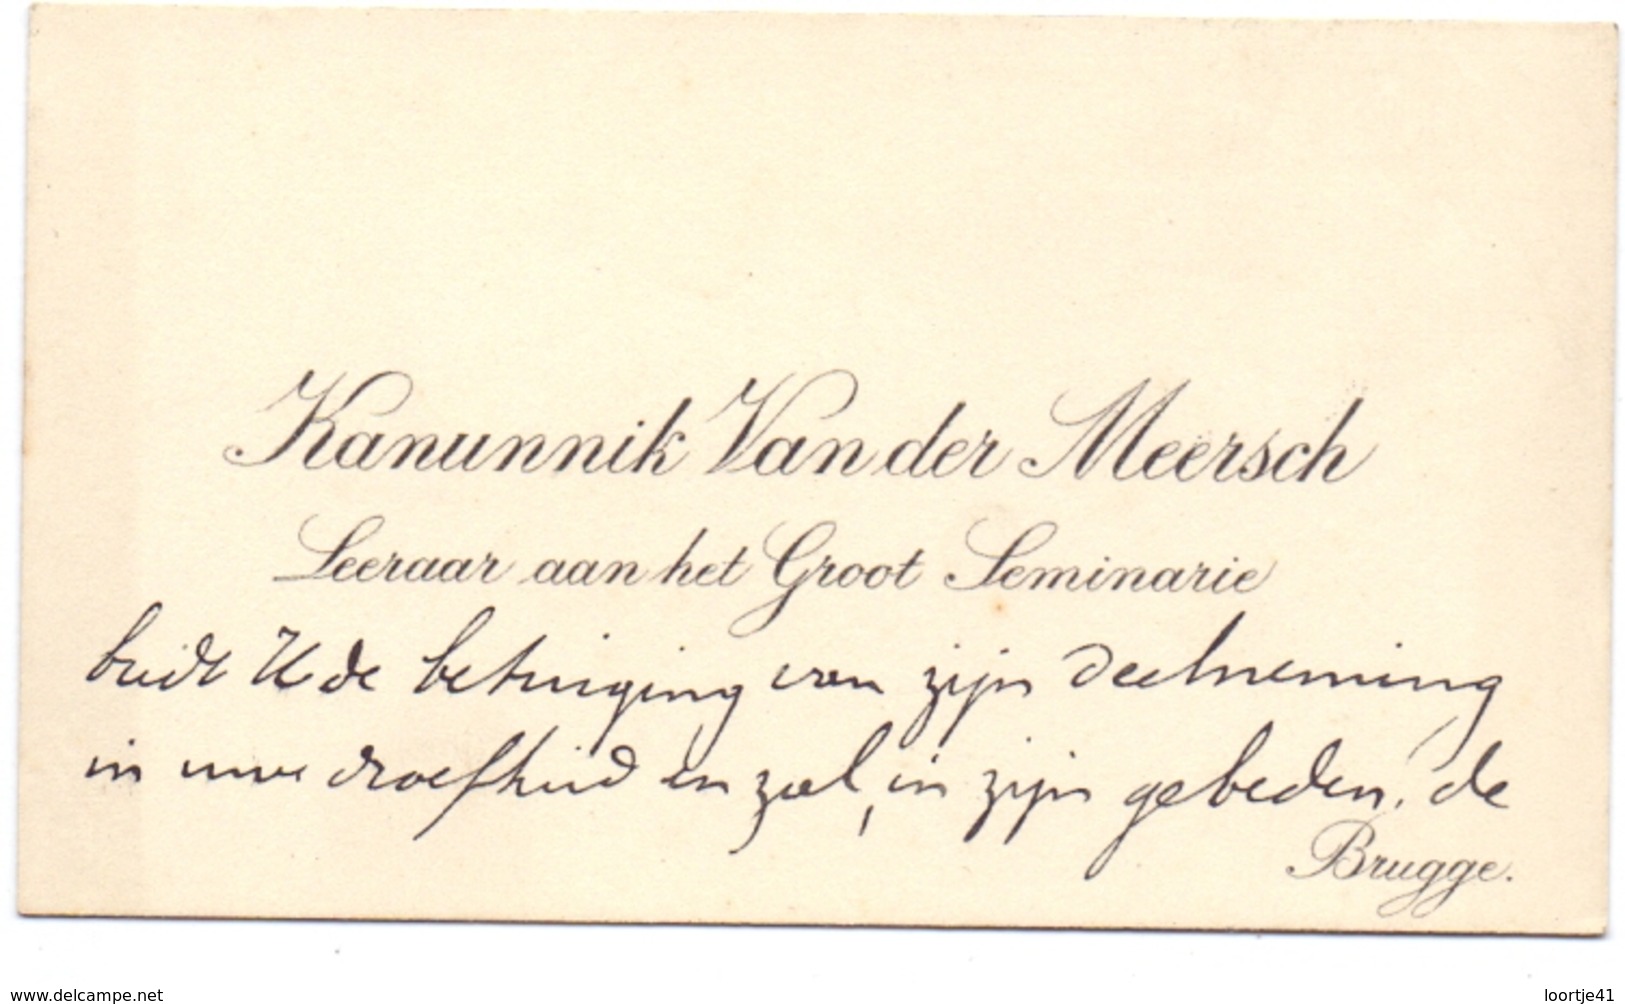 Kanunnik Van der Meersch
Leeraar aan het Groot Seminarie
biedt U de betuiging van zijn deelneming
in uwe droefheid en zal, in zijn gebeden, de
Brugge.
www.delcampe.net
loortje41